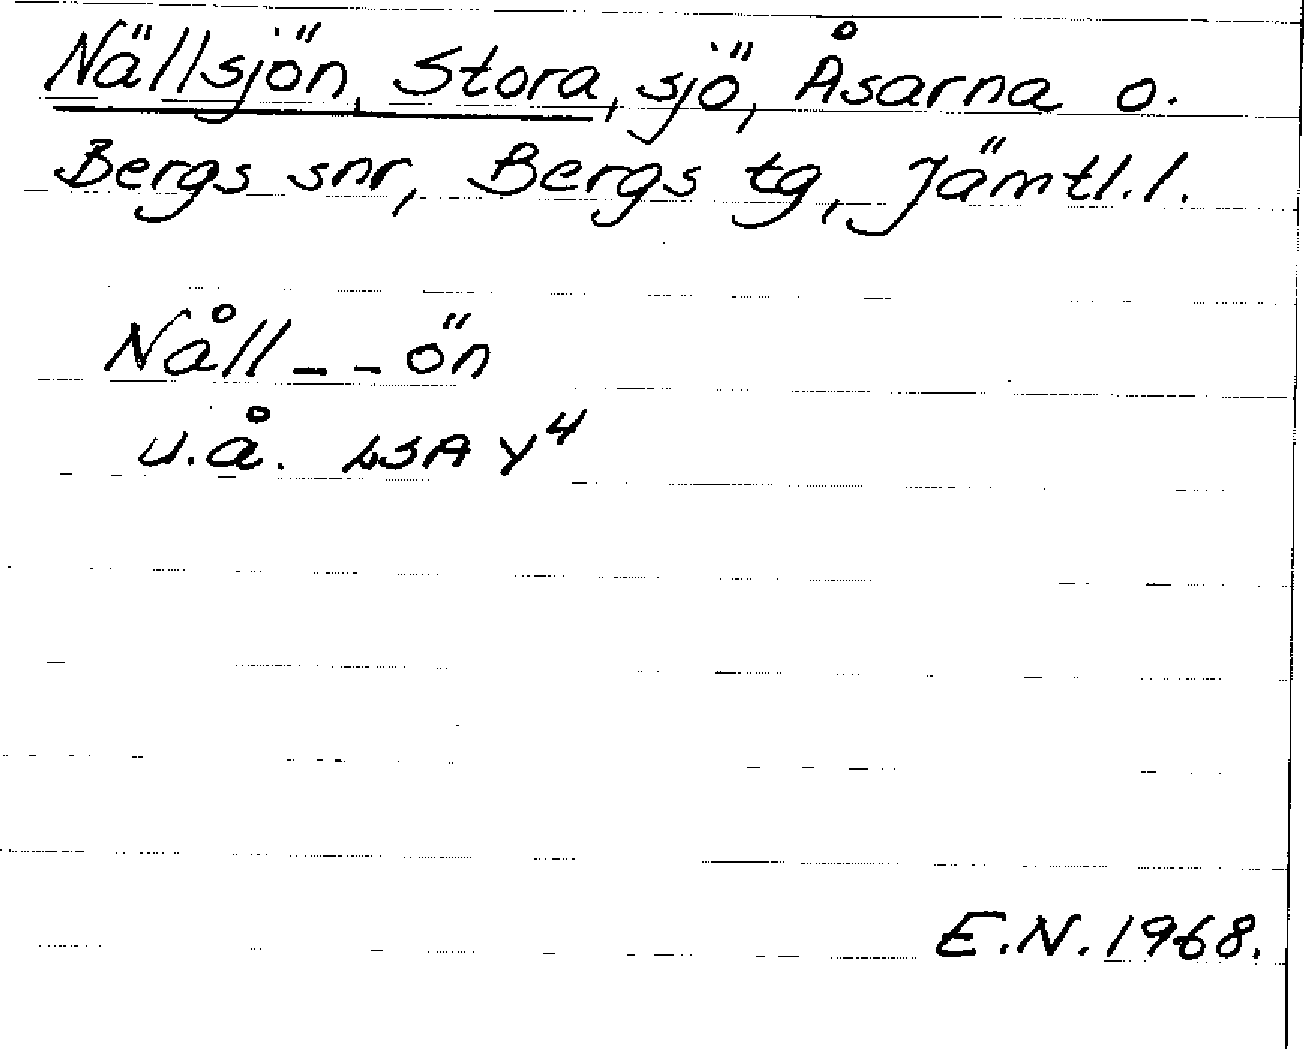 Nällsjön, Stora, sjö, Åsarna o.
Bergs snr, Bergs tg, Jämtl. l.
Nåll - - ön
u.å. LSA Y⁴
E.N. 1968.